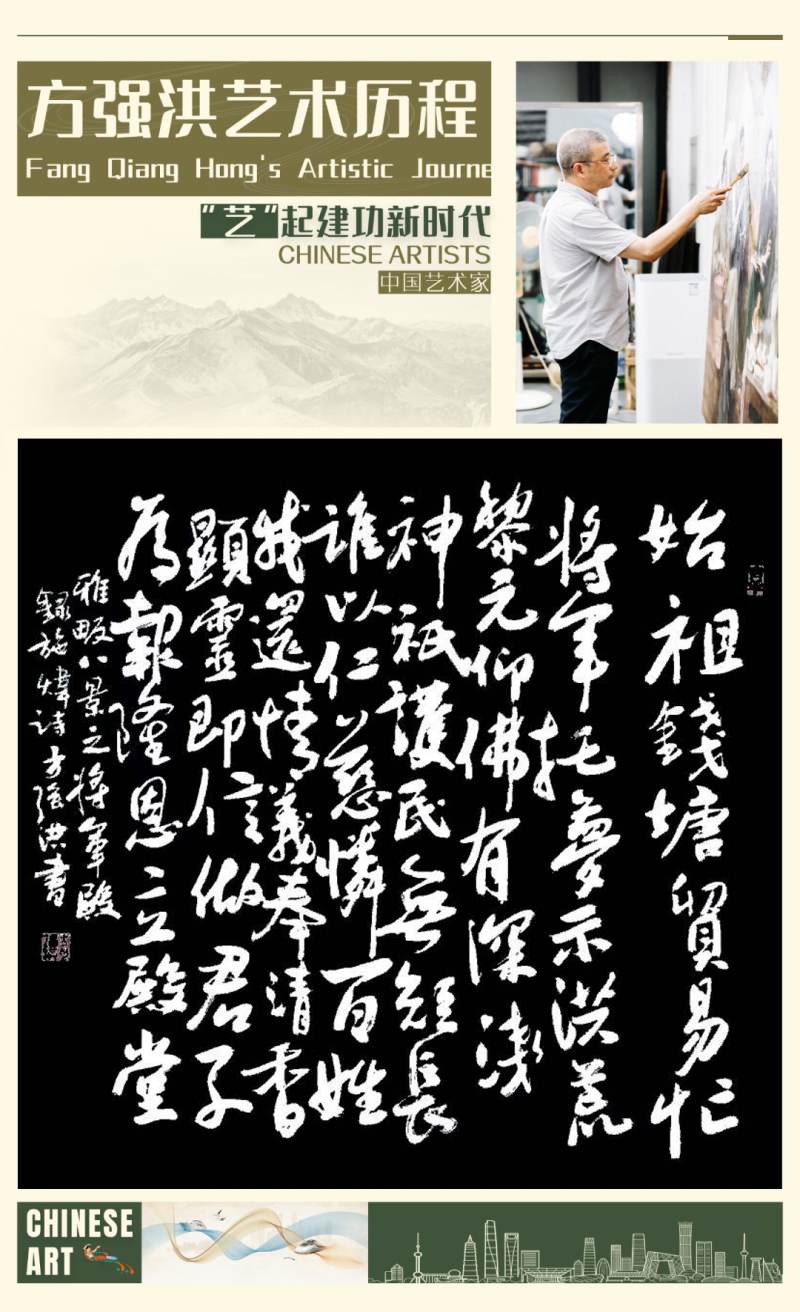 方强洪艺术历程
Fang Qiang Hong's Artistic Journe
“艺”起建功新时代
CHINESE ARTISTS
中国艺术家
始祖錢塘貿易忙
將軍托夢示洪荒
黎元仰佛有深淺
神祇護民無短長
誰以仁慈憐百姓
我還情義奉清香
顯靈即信做君子
為報隆恩立殿堂
雅畈八景之將軍殿
錄施煒詩方强洪書
CHINESE
ART